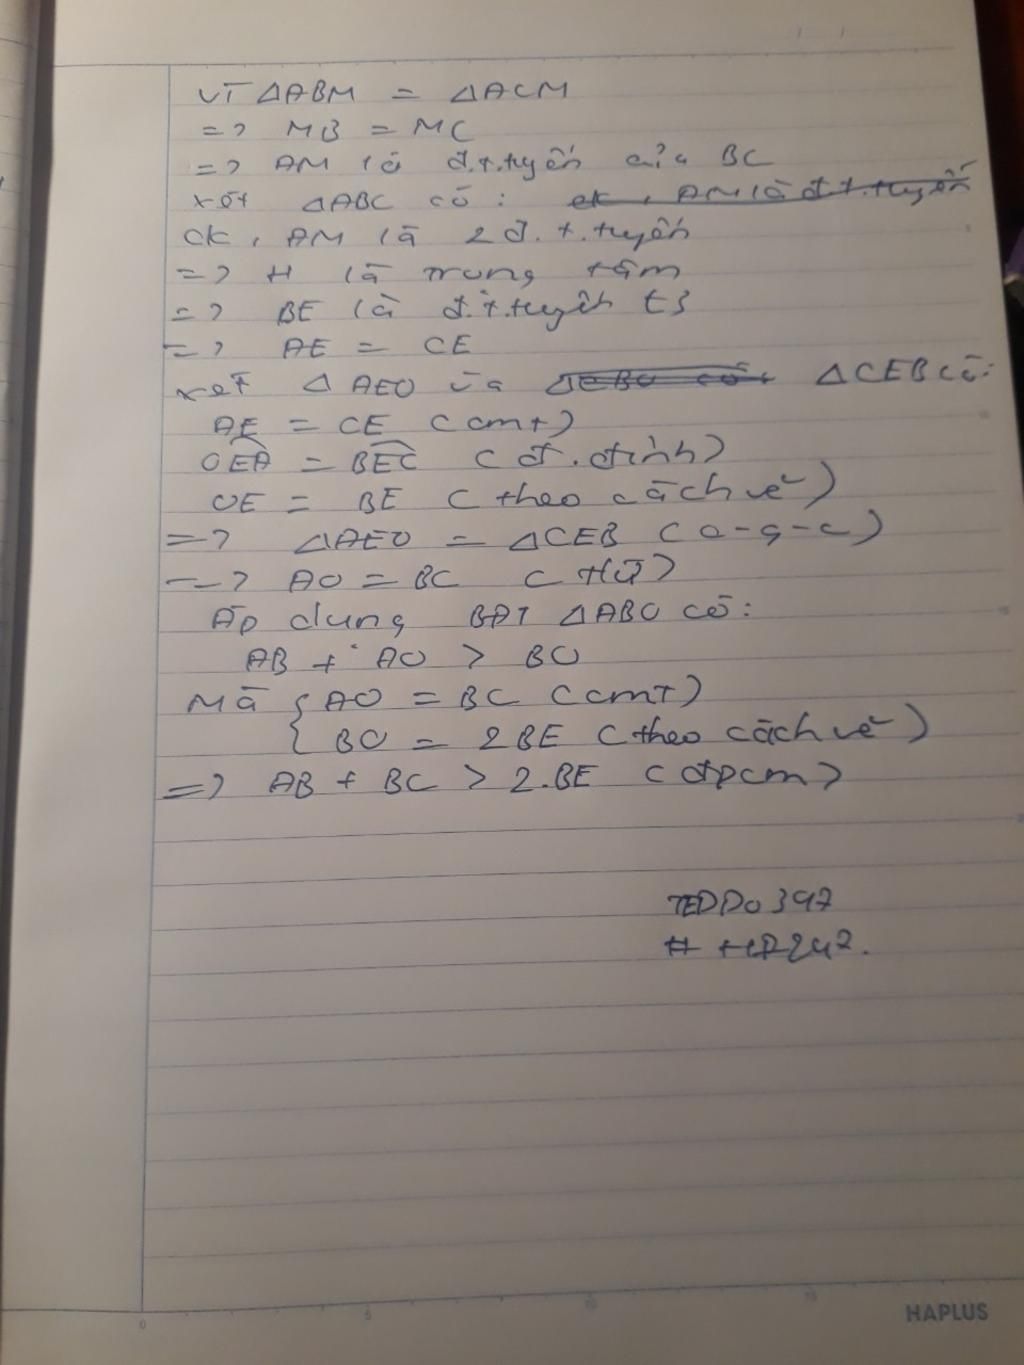 Vì ΔABM = ΔACM
=> MB = MC
=> AM là đ.t.tuyến của BC
xét ΔABC có: ck, AM là đ.t.tuyến
CK, AM là 2 đ.t.tuyến
=> H là trung tâm
=> BE là đ.t.tuyến t3
=> AE = CE
xét ΔAEO và ΔEBC có: ΔCEB có:
AE = CE (cmt)
OEA = BEC (đ.đỉnh)
OE = BE (theo cách vẽ)
=> ΔAEO = ΔCEB (c-g-c)
=> AO = BC (
Áp dụng BĐT ΔABO có:
AB + AO > BO
Mà { AO = BC (cmt)
BO = 2BE (theo cách vẽ)
=> AB + BC > 2.BE (đpcm)
TEDDO347
HAPLUS
0 5 10 15